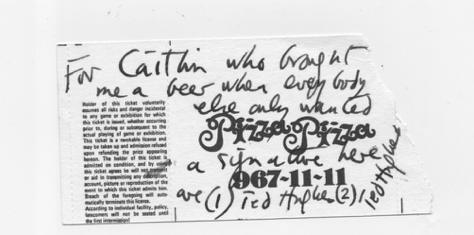 For Caitlin who brought
me a beer when everybody
else only wanted
a signature here
are (1) Ted Hughes (2)
Ted Hughes
Pizza Pizza
967-11-11
Holder of this ticket voluntarily
assumes all risks and danger incidental
to any game or exhibition for which
this ticket is issued, whether occurring
prior to, during or subsequent to the
actual playing of game or exhibition.
This ticket is a revokable license and
may be taken up and admission refused
upon refunding the price appearing
hereon. The holder of this ticket is
admitted on condition, and by using
this ticket agrees he will not transmit
or aid in transmitting any description,
account, picture or reproduction of the
event to which this ticket admits him.
Breach of the foregoing will auto-
matically terminate this license.
According to individual facility, policy,
latecomers will not be seated until
the first intermission!